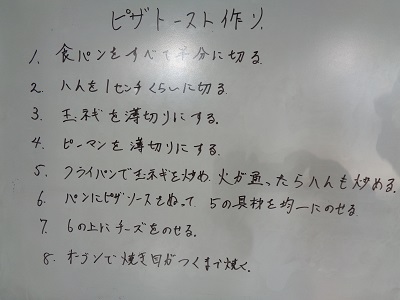 ピザトースト作り
1. 食パンをすべて半分に切る。
2. ハムを1センチくらいに切る
3. 玉ネギを薄切りにする。
4. ピーマンを薄切りにする。
5. フライパンで玉ネギを炒め、火が通ったらハムも炒める。
6. パンにピザソースをぬって、5の具材を均一にのせる。
7. 6の上にチーズをのせる。
8. オーブンで焼き目がつくまで焼く。